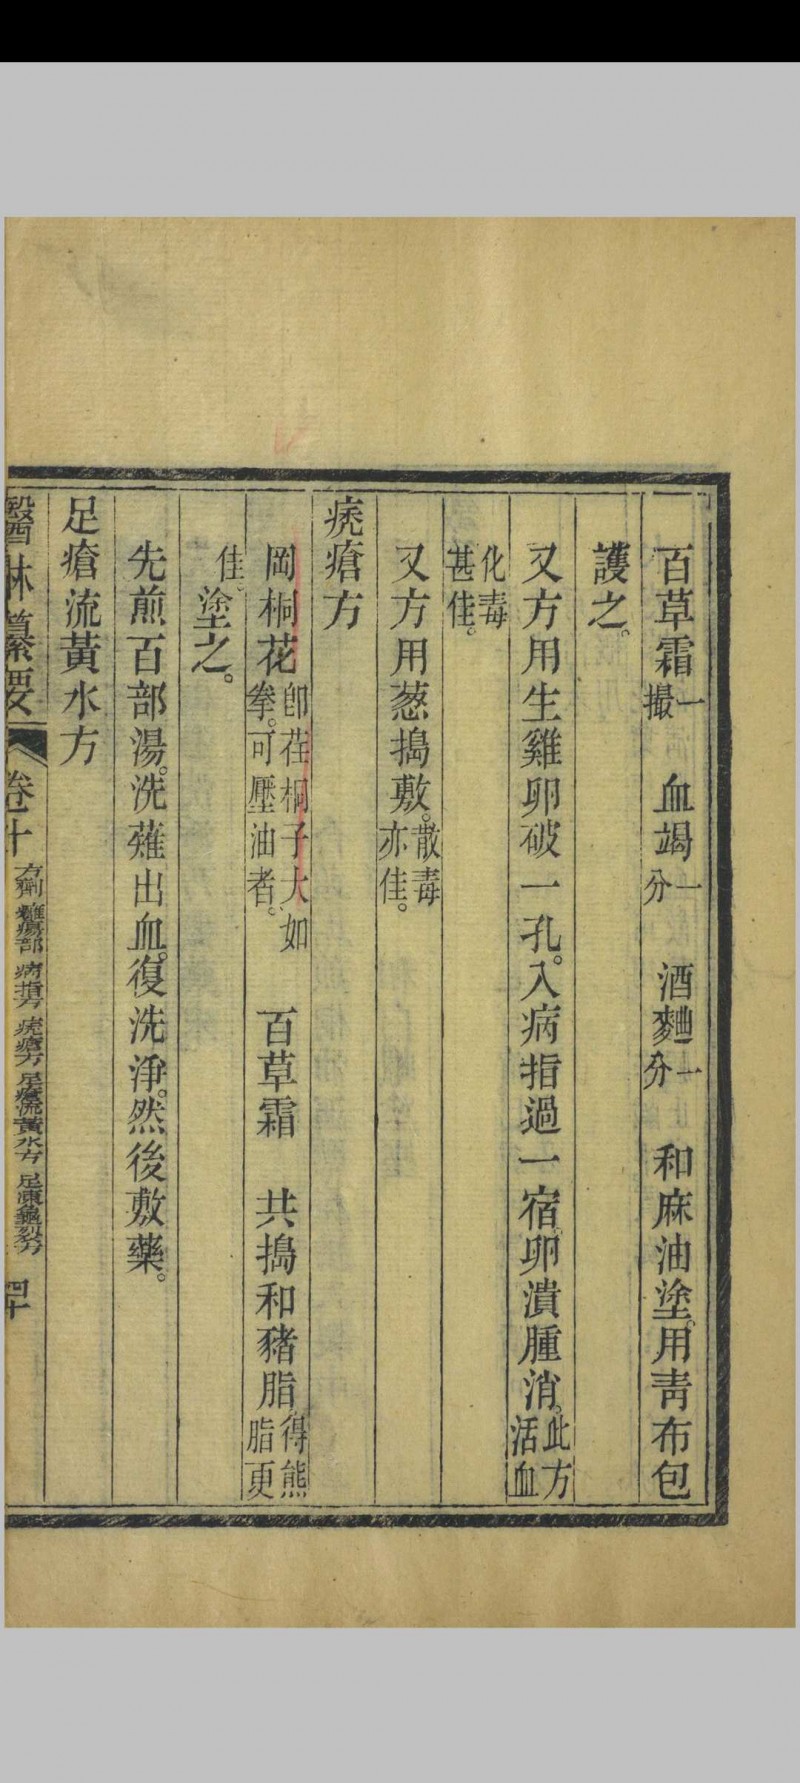 百草霜一撮　血竭一分　酒麯一分　和麻油塗。用靑布包
護之。
又方用生雞卵破一孔。入病指過一宿。卵潰腫消。此方活血
化毒甚佳。
又方用葱搗敷。散毒亦佳。
禿瘡方
岡桐花卽荏桐子大如拳。可壓油者。　百草霜　共搗和豬脂得熊脂更
佳。塗之。
先煎百部湯。洗薙出血。復洗淨。然後敷藥。
足瘡流黃水方
醫林纂要　卷十　方劑　癰瘍部　病指方　禿瘡方　足瘡流黃水方　足凍龜裂方　四十